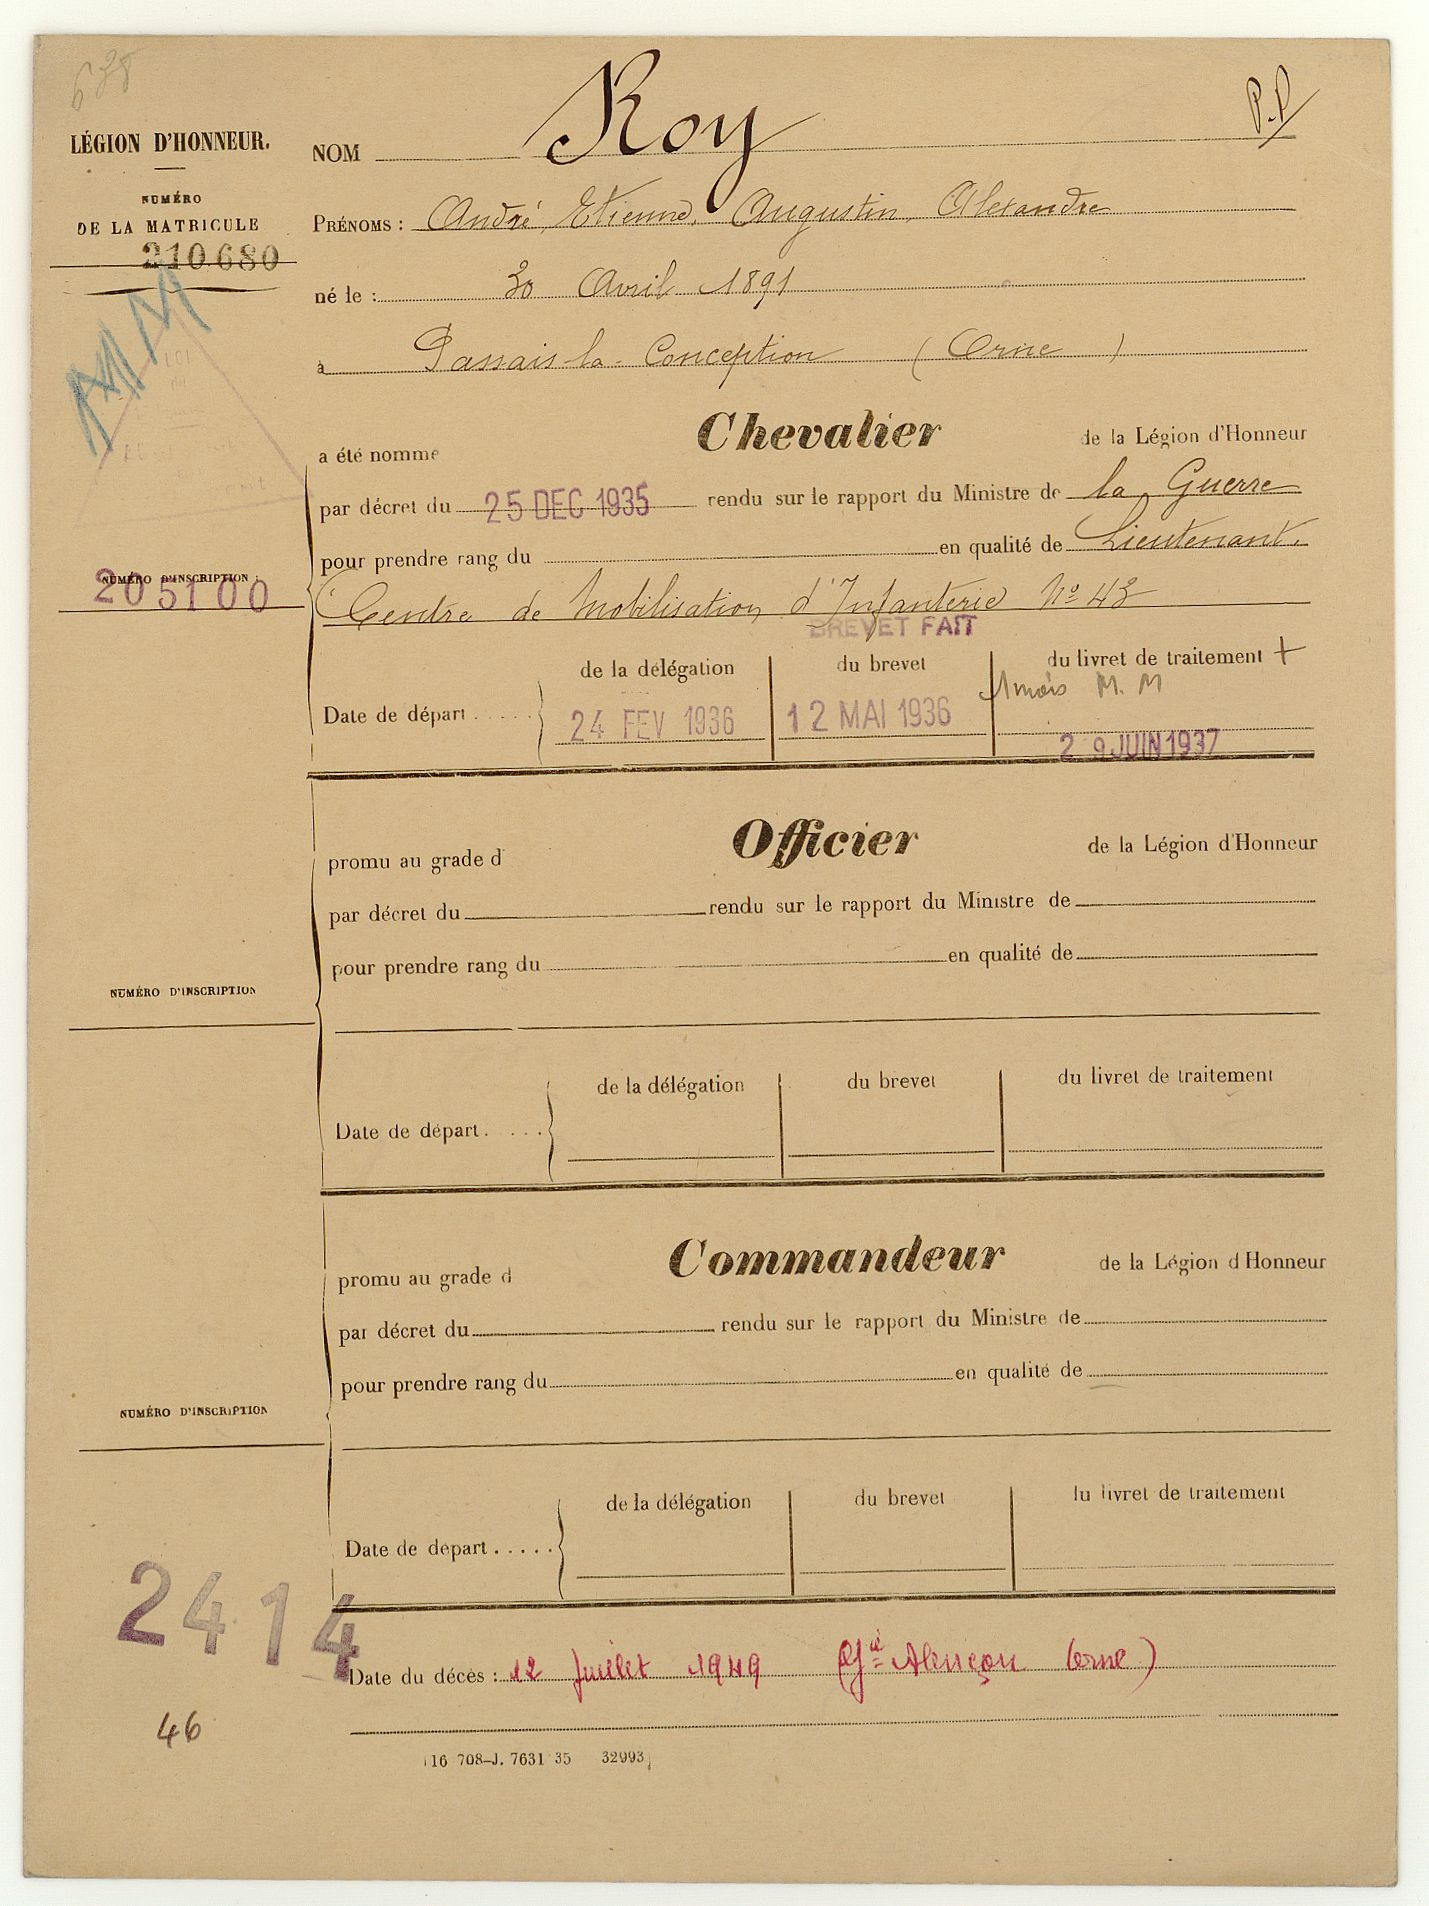 638
P.P
LÉGION D'HONNEUR.
NUMÉRO
DE LA MATRICULE
210680
NOM Roy
PRÉNOMS : André, Etienne, Augustin, Alexandre
né le : 30 Avril 1891
à Passais-la-Conception (Orne)
a été nommé Chevalier de la Légion d'Honneur
par décret du 25 DEC 1935 rendu sur le rapport du Ministre de la Guerre
pour prendre rang du en qualité de Lieutenant.
NUMÉRO D'INSCRIPTION :
205100
Centre de Mobilisation d'Infanterie Nº 43
BREVET FAIT
de la délégation du brevet du livret de traitement +
1 mois M. M
Date de départ ..... 24 FEV 1936 12 MAI 1936 29 JUIN 1937
promu au grade d Officier de la Légion d'Honneur
par décret du rendu sur le rapport du Ministre de
pour prendre rang du en qualité de
NUMÉRO D'INSCRIPTION
de la délégation du brevet du livret de traitement
Date de départ .....
promu au grade d Commandeur de la Légion d'Honneur
par décret du rendu sur le rapport du Ministre de
pour prendre rang du en qualité de
NUMÉRO D'INSCRIPTION
de la délégation du brevet du livret de traitement
Date de départ .....
2414
Date du décès : 12 Juillet 1949 Alençon Orne)
46
16 708-J. 7631 35 32993